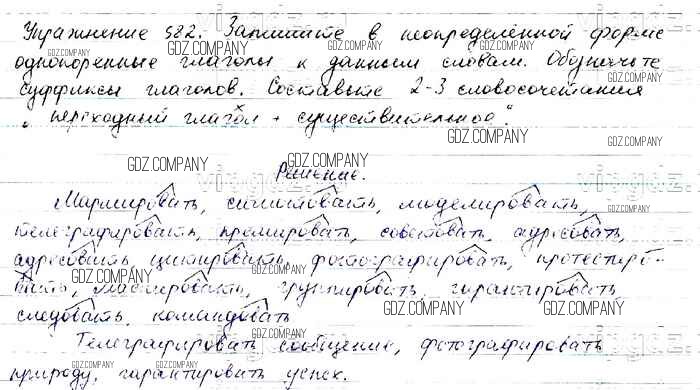 Упражнение 582. Запишите в неопределённой форме
однокоренные глаголы к данным словам. Обозначьте
суффиксы глаголов. Составьте 2-3 словосочетания
„переходный глагол + существительное".
Решение.
Маршировать, сигналить, моделировать,
телеграфировать, премировать, советовать, адресовать,
адресовать, цитировать, фотографировать, протестиро-
вать, массировать, группировать, гарантировать
следовать, командовать
Телеграфировать сообщение, фотографировать
природу, гарантировать успех.
GDZ.COMPANY